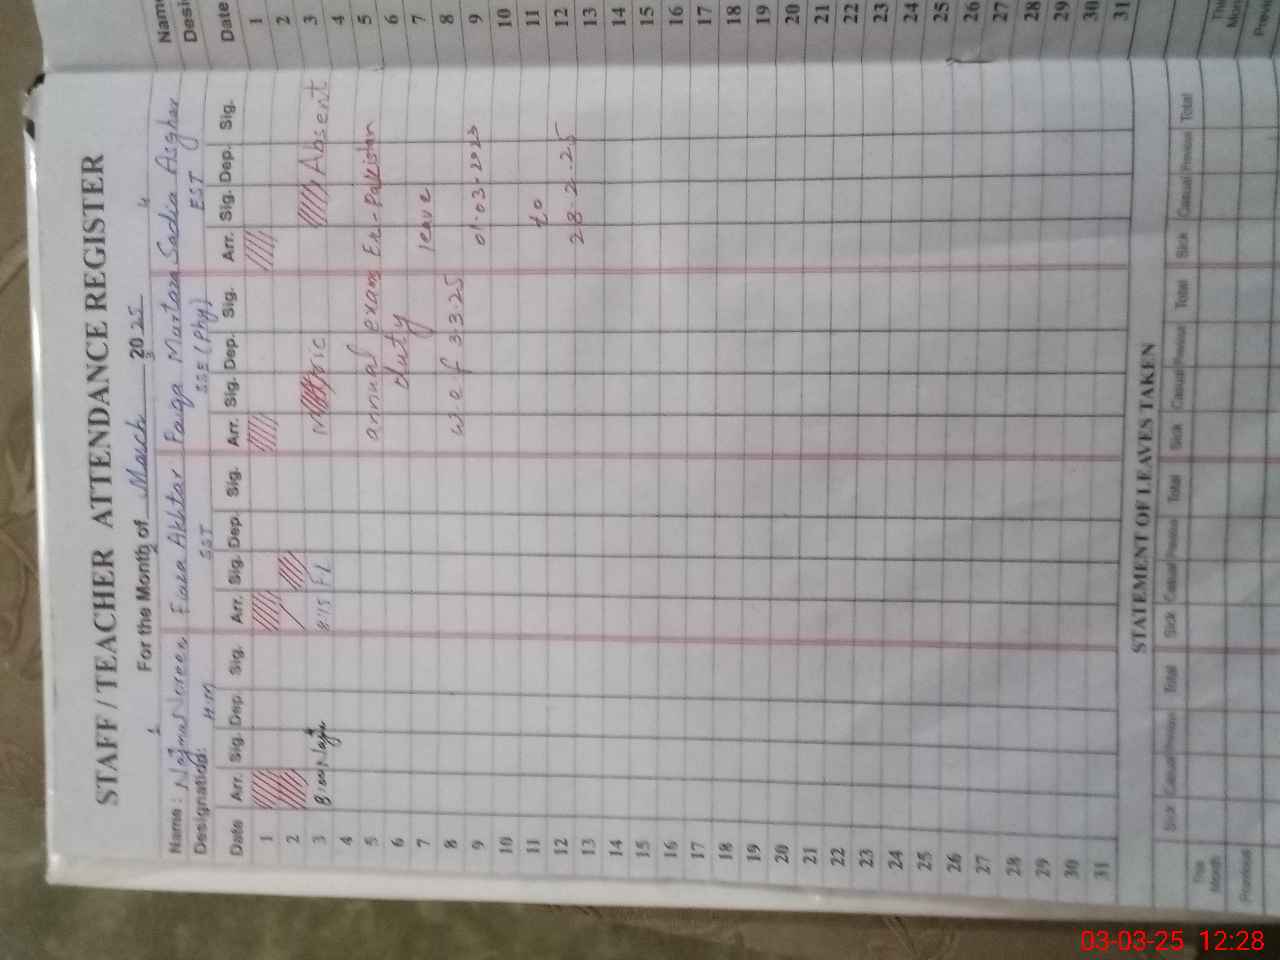 STAFF / TEACHER ATTENDANCE REGISTER
For the Month of March 2025
1 2 3 4
Name : Najma Noreen Fiaza Akhtar Faiqa Murtaza Sadia Asghar
Designation: H.M SST SSE (Phy) EST
Date Arr. Sig. Dep. Sig. Arr. Sig. Dep. Sig. Arr. Sig. Dep. Sig. Arr. Sig. Dep. Sig.
1
2
3 8:00 Najma 8:15 Matric Absent
4
5 annual exam Ex-Pakistan
6 duty
7 leave
8 w e f 3.3.25
9 01.03.2023
10
11 to
12 28.2.25
13
14
15
16
17
18
19
20
21
22
23
24
25
26
27
28
29
30
31
STATEMENT OF LEAVES TAKEN
Sick Casual Previous Total Sick Casual Previous Total Sick Casual Previous Total Sick Casual Previous Total
This Month
Previous
Name
Desi
Date
1
2
3
4
5
6
7
8
9
10
11
12
13
14
15
16
17
18
19
20
21
22
23
24
25
26
27
28
29
30
31
03-03-25 12:28